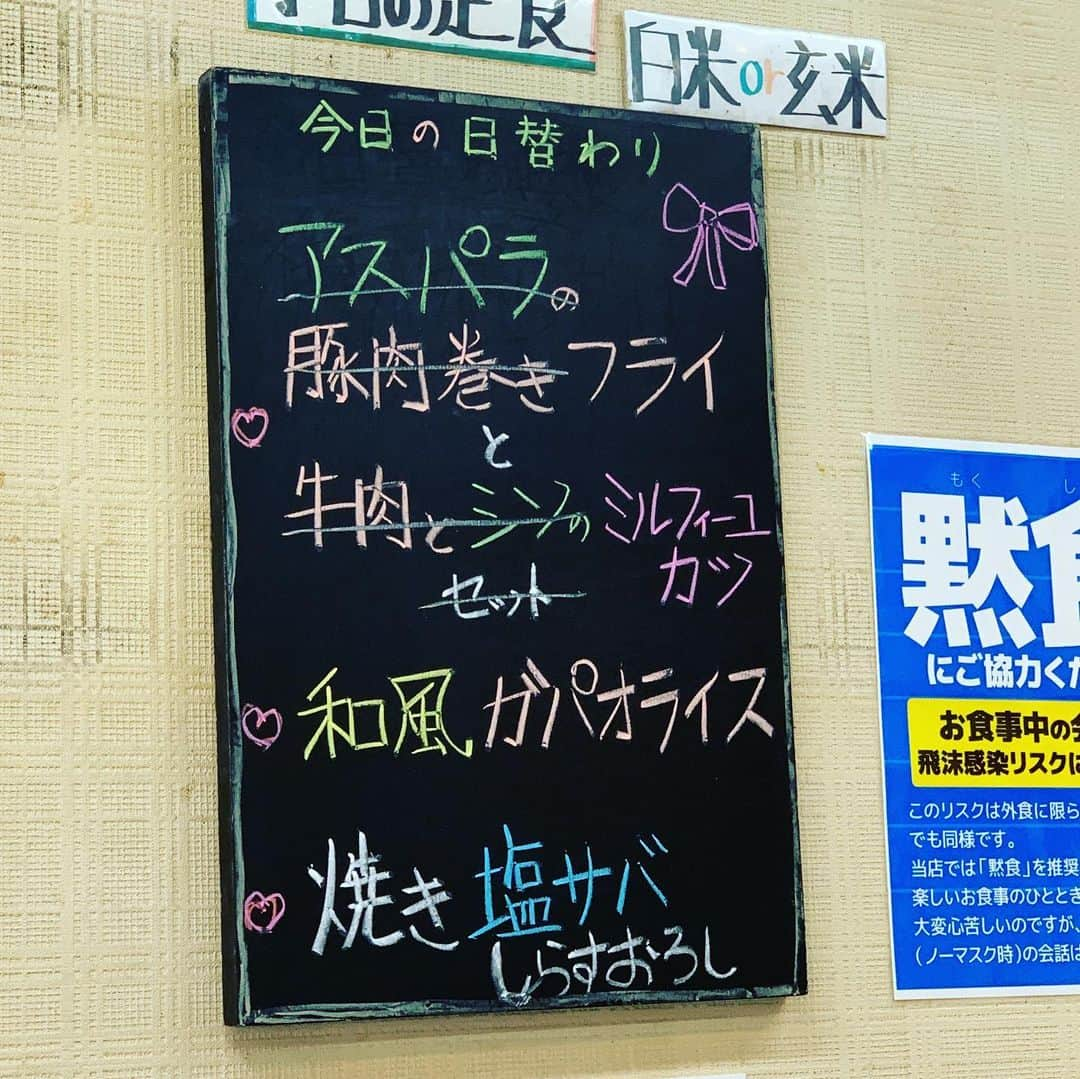 今日の定食
白米or玄米
今日の日替わり
アスパラの
豚肉巻きフライ
と
牛肉とシソのミルフィーユ
カツ
セット
和風ガパオライス
焼き塩サバ
しらすおろし
もく し
黙食
にご協力くだ
お食事中の会
飛沫感染リスクに
このリスクは外食に限ら
でも同様です。
当店では「黙食」を推奨
楽しいお食事のひととき
大変心苦しいのですが、
(ノーマスク時)の会話は